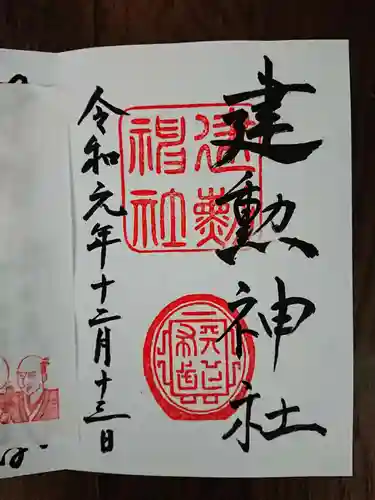 建勲神社
建勲
神社
令和元年十二月十三日